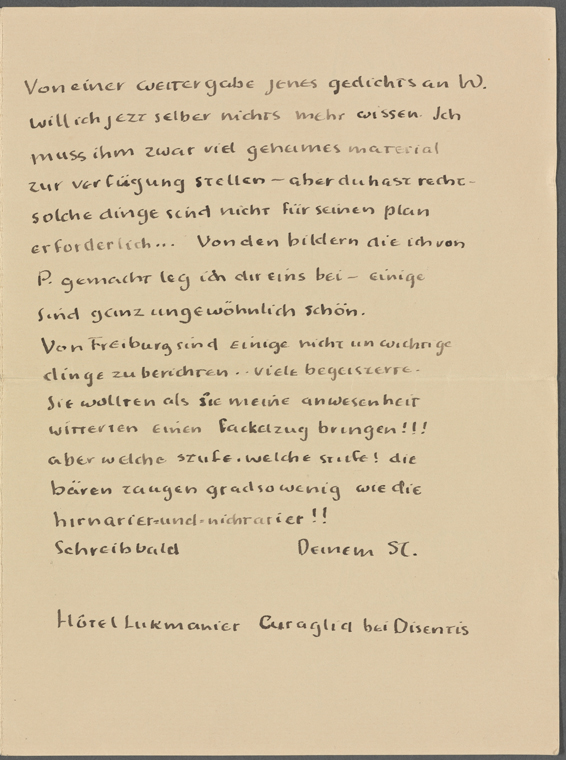 Von einer weitergabe jenes gedichts an W.
will ich jezt selber nichts mehr wissen. Ich
muss ihm zwar viel geheimes material
zur verfügung stellen – aber du hast recht –
solche dinge sind nicht für seinen plan
erforderlich... Von den bildern die ich von
P. gemacht leg ich dir eins bei – einige
sind ganz ungewöhnlich schön.
Von Freiburg sind einige nicht unwichtige
dinge zu berichten .. viele begeisterte.
Sie wollten als sie meine anwesenheit
witterten einen fackelzug bringen!!!
aber welche stufe. welche stufe! die
bären taugen grad so wenig wie die
hirnarier-und-nichtarier!!
Schreib bald Deinem St.
Hôtel Lukmanier Curaglia bei Disentis